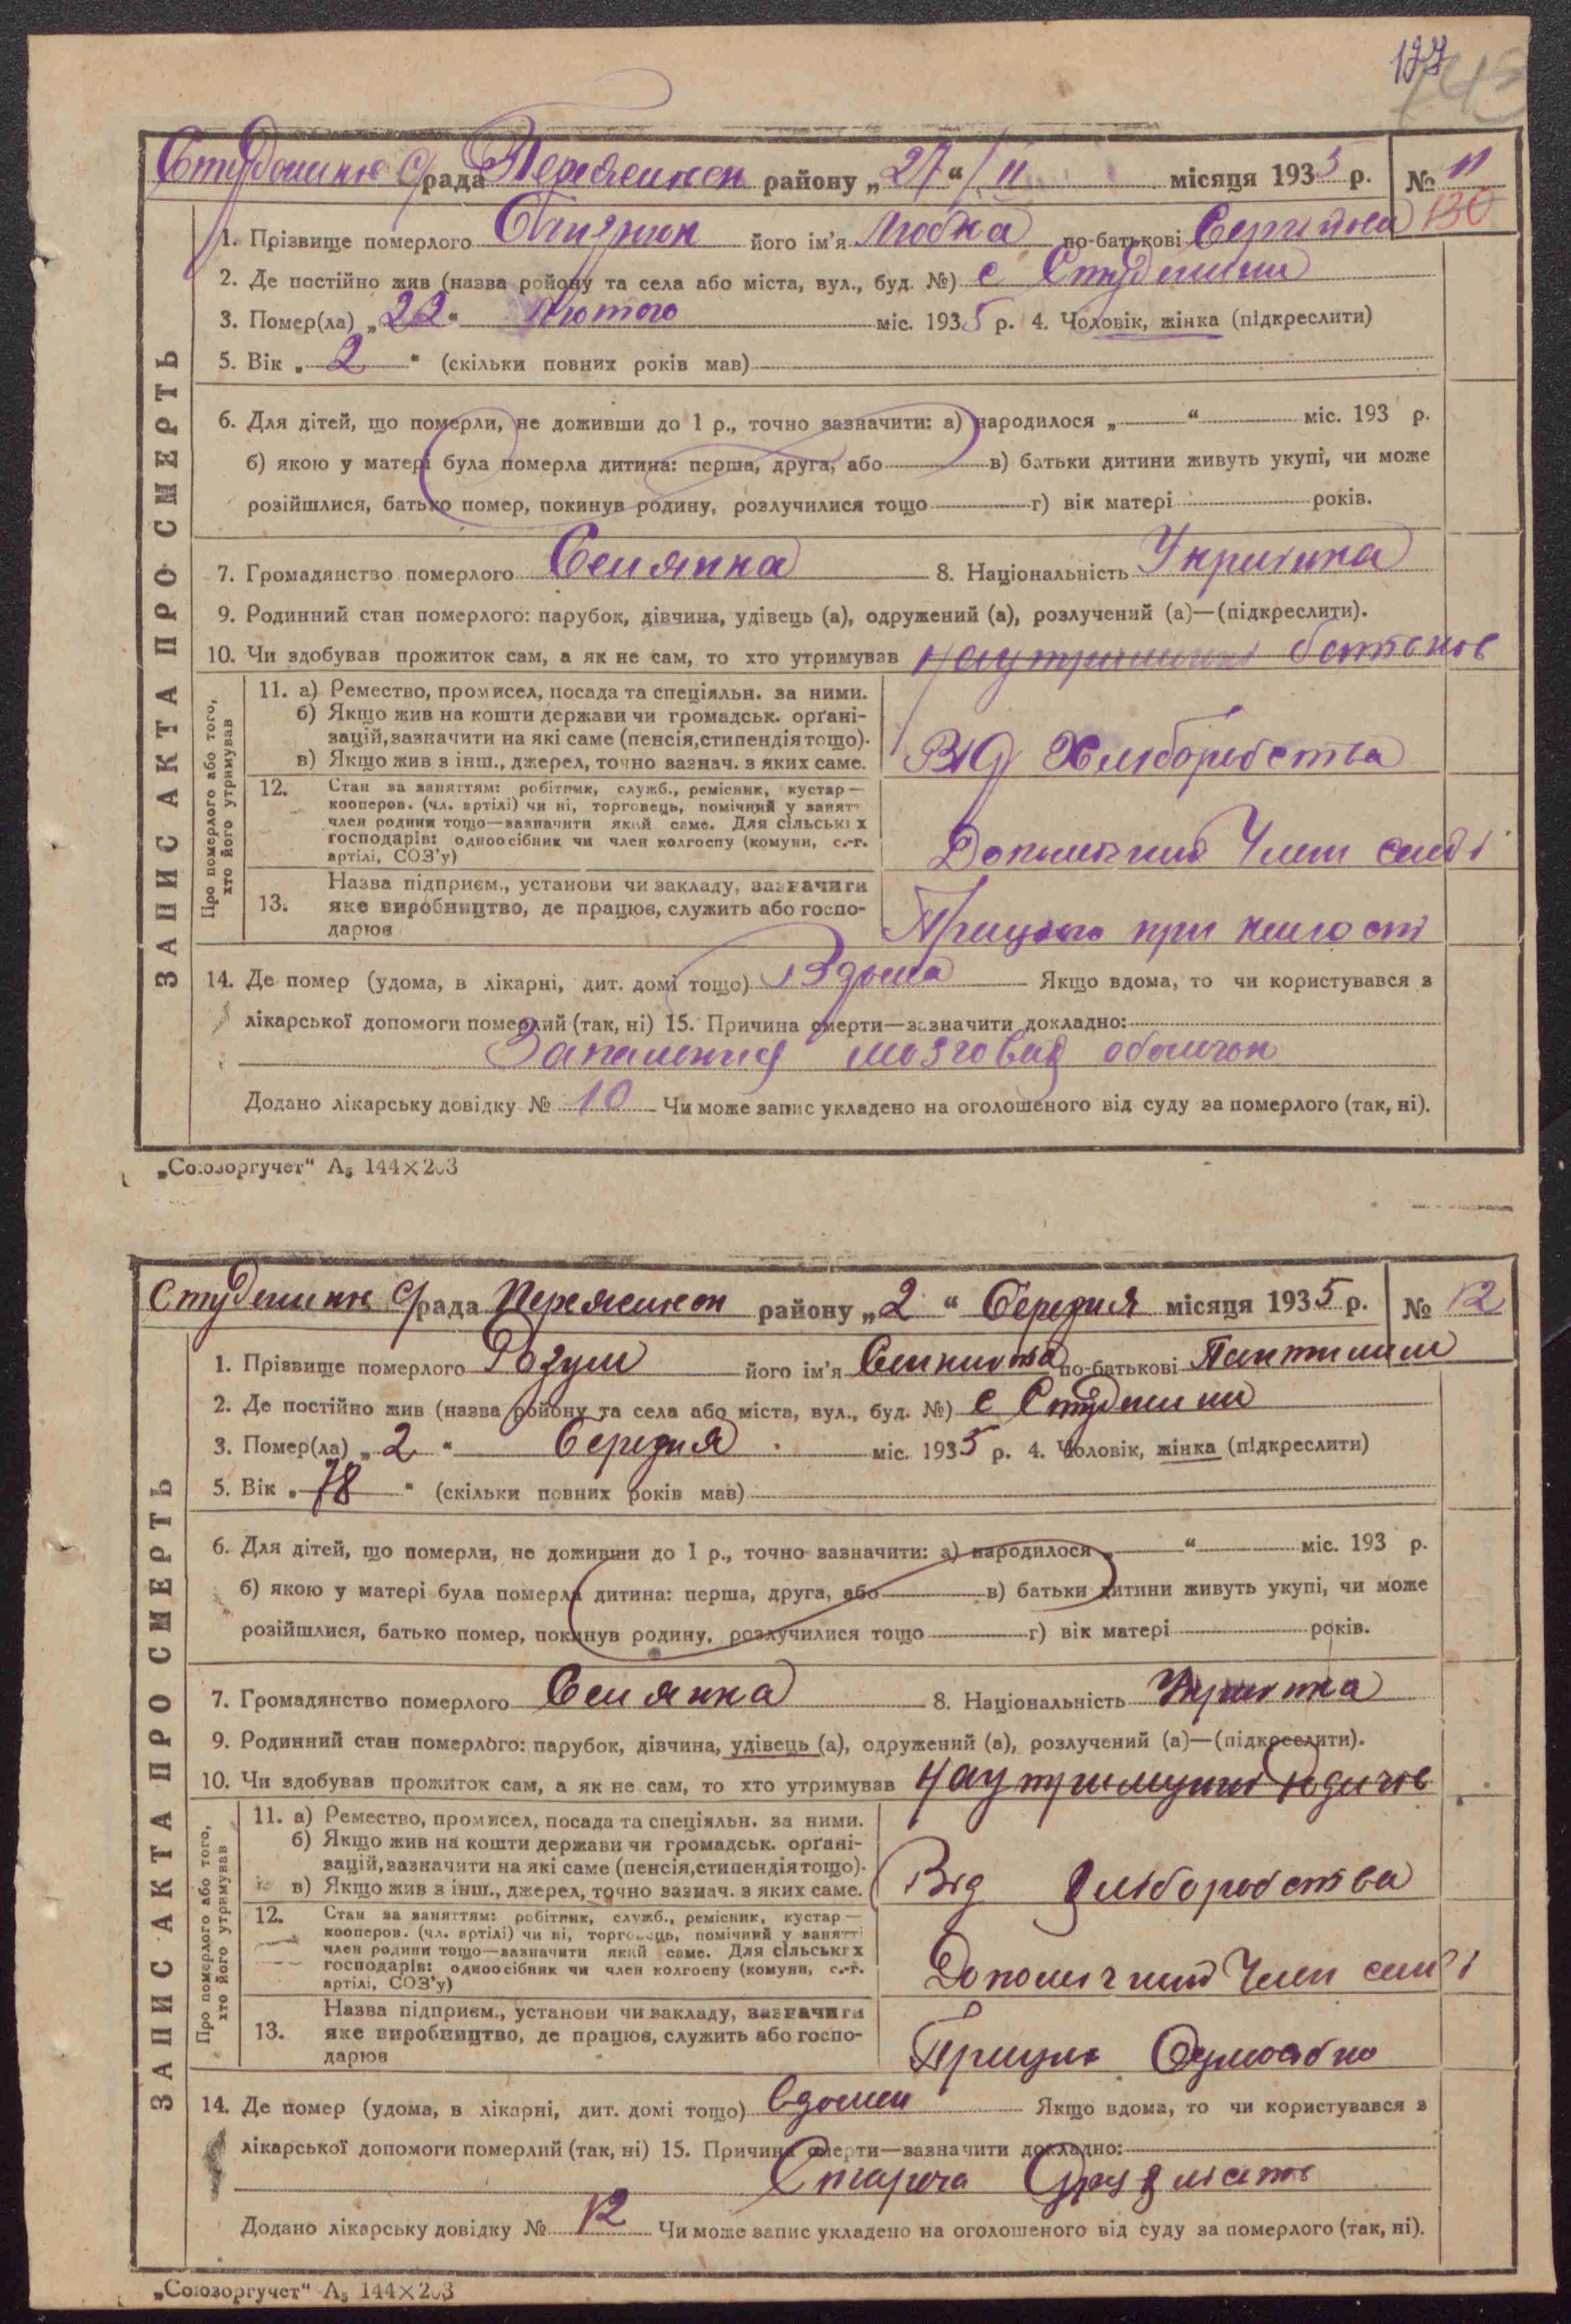 127
143
рада района „27“ II місяця 1935 р. № 11
130
1. Прізвище померлого його ім'я Любка по-батькові
2. Де постійно жив (назва ройону та села або міста, вул., буд. №) с
3. Помер(ла) „22“ Лютого міс. 1935 р. 4. Чоловік, жінка (підкреслити)
5. Вік „2“ (скільки повних років мав)
6. Для дітей, що померли, не доживши до 1 р., точно зазначити: а) народилося „ “ міс. 193 р.
б) якою у матері була померла дитина: перша, друга, або в) батьки дитини живуть укупі, чи може
розійшлися, батько помер, покинув родину, розлучилися тощо г) вік матері років.
7. Громадянство померлого Селянка 8. Національність
9. Родинний стан померлого: парубок, дівчина, удівець (а), одружений (а), розлучений (а)—(підкреслити).
10. Чи здобував прожиток сам, а як не сам, то хто утримував
ЗАПИС АКТА ПРО СМЕРТЬ
Про померлого або того,
хто його утримував
11. а) Ремество, промисел, посада та спеціяльн. за ними.
б) Якщо жив на кошти держави чи громадськ. орґані-
зацій, зазначити на які саме (пенсія, стипендія тощо).
в) Якщо жив з інш., джерел, точно зазнач. з яких саме.
Від Хліборобства
12. Стан за заняттям: робітник, служб., ремісник, кустар—
кооперов. (чл. артілі) чи ні, торговець, помічний у занятт
член родини тощо—зазначити який саме. Для сільських
господарів: одноосібник чи член колгоспу (комуни, с.-г.
артілі, СОЗ'у)
Член
13. Назва підприєм., установи чи закладу, зазначити
яке виробництво, де працює, служить або госпо-
дарює
при
14. Де помер (удома, в лікарні, дит. домі тощо) Вдома Якщо вдома, то чи користувався з
лікарської допомоги померлий (так, ні) 15. Причина смерти—зазначити докладно:
Запалення мозговых оболочок
Додано лікарську довідку № 10 Чи може запис укладено на оголошеного від суду за померлого (так, ні).
„Союзоргучет“ А₅ 144×203
рада району „2“ Березня місяця 1935 р. № 12
1. Прізвище померлого Розум його ім'я по-батькові
2. Де постійно жив (назва ройону та села або міста, вул., буд. №) с
3. Помер(ла) „2“ Березня міс. 1935 р. 4. Чоловік, жінка (підкреслити)
5. Вік „78“ (скільки повних років мав)
6. Для дітей, що померли, не доживши до 1 р., точно зазначити: а) народилося „ “ міс. 193 р.
б) якою у матері була померла дитина: перша, друга, або в) батьки дитини живуть укупі, чи може
розійшлися, батько помер, покинув родину, розлучилися тощо г) вік матері років.
7. Громадянство померлого Селянка 8. Національність
9. Родинний стан померлого: парубок, дівчина, удівець (а), одружений (а), розлучений (а)—(підкреслити).
10. Чи здобував прожиток сам, а як не сам, то хто утримував
ЗАПИС АКТА ПРО СМЕРТЬ
Про померлого або того,
хто його утримував
11. а) Ремество, промисел, посада та спеціяльн. за ними.
б) Якщо жив на кошти держави чи громадськ. орґані-
зацій, зазначити на які саме (пенсія, стипендія тощо).
в) Якщо жив з інш., джерел, точно зазнач. з яких саме.
Від Хліборобства
12. Стан за заняттям: робітник, служб., ремісник, кустар—
кооперов. (чл. артілі) чи ні, торговець, помічний у занятті
член родини тощо—зазначити який саме. Для сільських
господарів: одноосібник чи член колгоспу (комуни, с.-г.
артілі, СОЗ'у)
Член
13. Назва підприєм., установи чи закладу, зазначити
яке виробництво, де працює, служить або госпо-
дарює
14. Де помер (удома, в лікарні, дит. домі тощо) Вдома Якщо вдома, то чи користувався з
лікарської допомоги померлий (так, ні) 15. Причина смерти—зазначити докладно:
Стареча
Додано лікарську довідку № 12 Чи може запис укладено на оголошеного від суду за померлого (так, ні).
„Союзоргучет“ А₅ 144×203